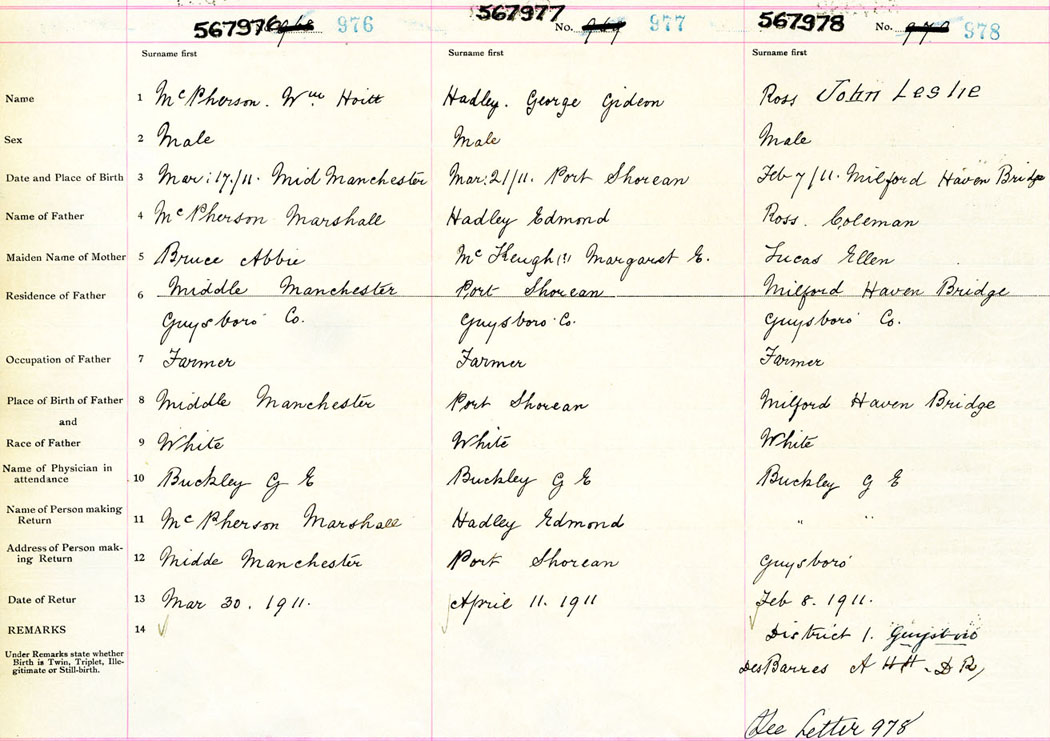 567976 976 567977 No. 977 567978 No. 978
Surname first Surname first Surname first
Name 1 McPherson. Wm Hoitt Hadley. George Gideon Ross John Leslie
Sex 2 Male Male Male
Date and Place of Birth 3 Mar: 17/11. Mid Manchester Mar: 21/11. Port Shorean Feb 7/11. Milford Haven Bridge
Name of Father 4 McPherson Marshall Hadley Edmond Ross. Coleman
Maiden Name of Mother 5 Bruce Abbie McKeugh(?) Margaret E. Lucas Ellen
Residence of Father 6 Middle Manchester Port Shorean Milford Haven Bridge
Guysboro Co. Guysboro Co. Guysboro' Co.
Occupation of Father 7 Farmer Farmer Farmer
Place of Birth of Father 8 Middle Manchester Port Shorean Milford Haven Bridge
and
Race of Father 9 White White White
Name of Physician in
attendance 10 Buckley G E Buckley G E Buckley G E
Name of Person making
Return 11 McPherson Marshall Hadley Edmond " "
Address of Person mak-
ing Return 12 Midde Manchester Port Shorean Guysboro'
Date of Retur 13 Mar 30. 1911. April 11. 1911 Feb 8. 1911.
REMARKS 14 District 1. Guysboro
Under Remarks state whether
Birth is Twin, Triplet, Ille-
gitimate or Still-birth.
DesBarres A HH - D R,
See Letter 978